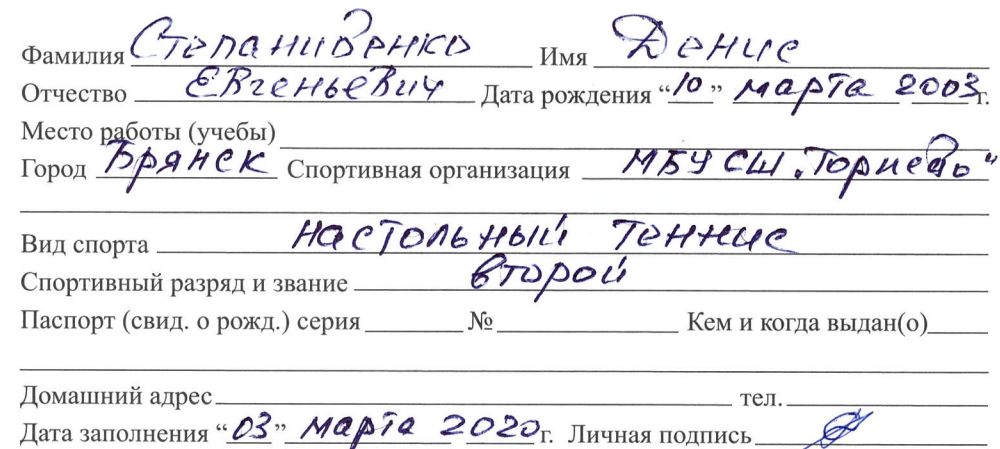 Фамилия Степаниденко Имя Денис
Отчество Евгеньевич Дата рождения “10” марта 2003г.
Место работы (учебы)
Город Брянск Спортивная организация МБУ СШ „Торпедо“
Вид спорта настольный теннис
Спортивный разряд и звание второй
Паспорт (свид. о рожд.) серия № Кем и когда выдан(о)
Домашний адрес тел.
Дата заполнения “03” марта 2020г. Личная подпись